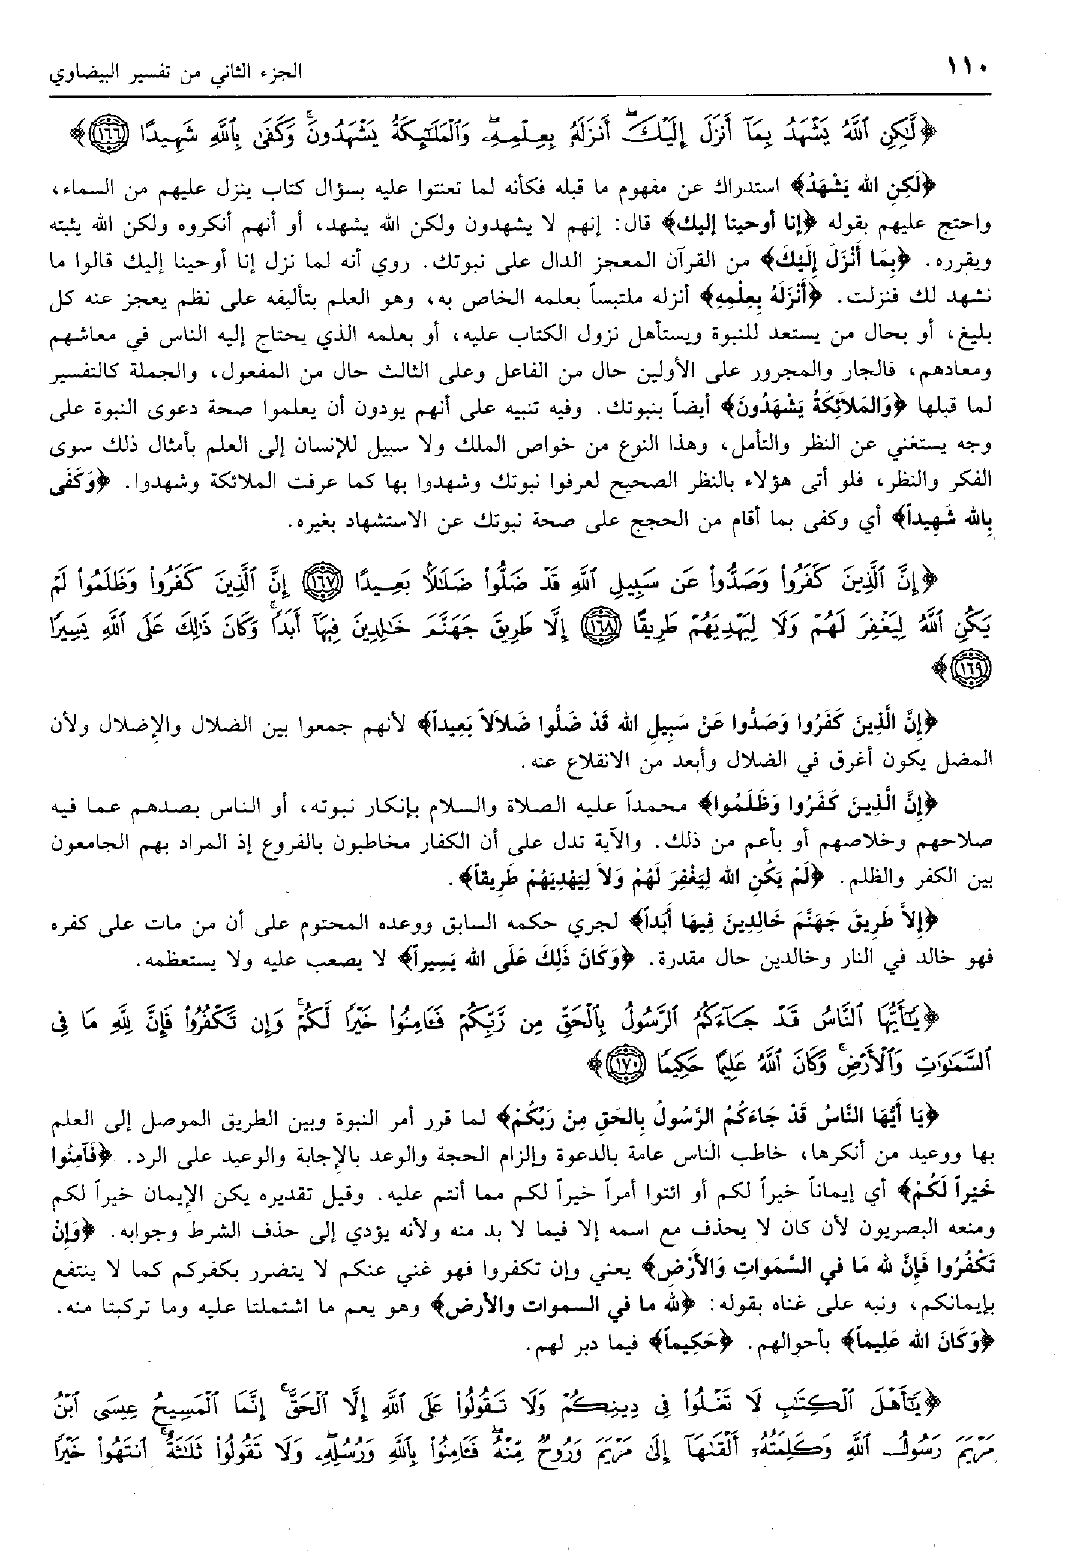 ١١٠ الجزء الثاني من تفسير البيضاوي
﴿لَّٰكِنِ ٱللَّهُ يَشْهَدُ بِمَآ أَنزَلَ إِلَيْكَ ۖ أَنزَلَهُۥ بِعِلْمِهِۦ ۖ وَٱلْمَلَٰٓئِكَةُ يَشْهَدُونَ ۚ وَكَفَىٰ بِٱللَّهِ شَهِيدًا ١٦٦﴾
﴿لَكِنِ الله يَشْهَدُ﴾ استدراك عن مفهوم ما قبله فكأنه لما تعنتوا عليه بسؤال كتاب ينزل عليهم من السماء،
واحتج عليهم بقوله ﴿إنا أوحينا إليك﴾ قال: إنهم لا يشهدون ولكن الله يشهد، أو أنهم أنكروه ولكن الله يثبته
ويقرره. ﴿بِمَا أَنْزَلَ إِلَيْكَ﴾ من القرآن المعجز الدال على نبوتك. روي أنه لما نزل إنا أوحينا إليك قالوا ما
نشهد لك فنزلت. ﴿أَنْزَلَهُ بِعِلْمِهِ﴾ أنزله ملتبساً بعلمه الخاص به، وهو العلم بتأليفه على نظم يعجز عنه كل
بليغ، أو بحال من يستعد للنبوة ويستأهل نزول الكتاب عليه، أو بعلمه الذي يحتاج إليه الناس في معاشهم
ومعادهم، فالجار والمجرور على الأولين حال من الفاعل وعلى الثالث حال من المفعول، والجملة كالتفسير
لما قبلها ﴿وَالمَلاَئِكَةُ يَشْهَدُونَ﴾ أيضاً بنبوتك. وفيه تنبيه على أنهم يودون أن يعلموا صحة دعوى النبوة على
وجه يستغني عن النظر والتأمل، وهذا النوع من خواص الملك ولا سبيل للإنسان إلى العلم بأمثال ذلك سوى
الفكر والنظر، فلو أتى هؤلاء بالنظر الصحيح لعرفوا نبوتك وشهدوا بها كما عرفت الملائكة وشهدوا. ﴿وَكَفَى
بِالله شَهِيداً﴾ أي وكفى بما أقام من الحجج على صحة نبوتك عن الاستشهاد بغيره.
﴿إِنَّ ٱلَّذِينَ كَفَرُوا۟ وَصَدُّوا۟ عَن سَبِيلِ ٱللَّهِ قَدْ ضَلُّوا۟ ضَلَٰلًۢا بَعِيدًا ١٦٧ إِنَّ ٱلَّذِينَ كَفَرُوا۟ وَظَلَمُوا۟ لَمْ
يَكُنِ ٱللَّهُ لِيَغْفِرَ لَهُمْ وَلَا لِيَهْدِيَهُمْ طَرِيقًا ١٦٨ إِلَّا طَرِيقَ جَهَنَّمَ خَٰلِدِينَ فِيهَآ أَبَدًا ۚ وَكَانَ ذَٰلِكَ عَلَى ٱللَّهِ يَسِيرًا
١٦٩﴾
﴿إِنَّ الَّذِينَ كَفَرُوا وَصَدُّوا عَنْ سَبِيلِ الله قَدْ ضَلُّوا ضَلاَلاً بَعِيداً﴾ لأنهم جمعوا بين الضلال والإضلال ولأن
المضل يكون أغرق في الضلال وأبعد من الانقلاع عنه.
﴿إِنَّ الَّذِينَ كَفَرُوا وَظَلَمُوا﴾ محمداً عليه الصلاة والسلام بإنكار نبوته، أو الناس بصدهم عما فيه
صلاحهم وخلاصهم أو بأعم من ذلك. والآية تدل على أن الكفار مخاطبون بالفروع إذ المراد بهم الجامعون
بين الكفر والظلم. ﴿لَمْ يَكُنِ الله لِيَغْفِرَ لَهُمْ وَلاَ لِيَهْدِيَهُمْ طَرِيقاً﴾.
﴿إِلاَّ طَرِيقَ جَهَنَّمَ خَالِدِينَ فِيهَا أَبَداً﴾ لجري حكمه السابق ووعده المحتوم على أن من مات على كفره
فهو خالد في النار وخالدين حال مقدرة. ﴿وَكَانَ ذَلِكَ عَلَى الله يَسِيراً﴾ لا يصعب عليه ولا يستعظمه.
﴿يَٰٓأَيُّهَا ٱلنَّاسُ قَدْ جَآءَكُمُ ٱلرَّسُولُ بِٱلْحَقِّ مِن رَّبِّكُمْ فَـَٔامِنُوا۟ خَيْرًا لَّكُمْ ۚ وَإِن تَكْفُرُوا۟ فَإِنَّ لِلَّهِ مَا فِى
ٱلسَّمَٰوَٰتِ وَٱلْأَرْضِ ۚ وَكَانَ ٱللَّهُ عَلِيمًا حَكِيمًا ١٧٠﴾
﴿يَا أَيُّهَا النَّاسُ قَدْ جَاءَكُمْ الرَّسُولُ بِالحَقِ مِنْ رَبِّكُمْ﴾ لما قرر أمر النبوة وبين الطريق الموصل إلى العلم
بها ووعيد من أنكرها، خاطب الناس عامة بالدعوة وإلزام الحجة والوعد بالإجابة والوعيد على الرد. ﴿فَآمِنُوا
خَيْراً لَكُمْ﴾ أي إيماناً خيراً لكم أو ائتوا أمراً خيراً لكم مما أنتم عليه. وقيل تقديره يكن الإيمان خيراً لكم
ومنعه البصريون لأن كان لا يحذف مع اسمه إلا فيما لا بد منه ولأنه يؤدي إلى حذف الشرط وجوابه. ﴿وَإِن
تَكْفُرُوا فَإِنَّ لله مَا في السَّمَواتِ وَالأَرْضِ﴾ يعني وإن تكفروا فهو غني عنكم لا يتضرر بكفركم كما لا ينتفع
بإيمانكم، ونبه على غناه بقوله: ﴿لله ما في السموات والأرض﴾ وهو يعم ما اشتملتا عليه وما تركبتا منه.
﴿وَكَانَ الله عَلِيماً﴾ بأحوالهم. ﴿حَكِيماً﴾ فيما دبر لهم.
﴿يَٰٓأَهْلَ ٱلْكِتَٰبِ لَا تَغْلُوا۟ فِى دِينِكُمْ وَلَا تَقُولُوا۟ عَلَى ٱللَّهِ إِلَّا ٱلْحَقَّ ۚ إِنَّمَا ٱلْمَسِيحُ عِيسَى ٱبْنُ
مَرْيَمَ رَسُولُ ٱللَّهِ وَكَلِمَتُهُۥٓ أَلْقَىٰهَآ إِلَىٰ مَرْيَمَ وَرُوحٌ مِّنْهُ ۖ فَـَٔامِنُوا۟ بِٱللَّهِ وَرُسُلِهِۦ ۖ وَلَا تَقُولُوا۟ ثَلَٰثَةٌ ۚ ٱنتَهُوا۟ خَيْرًا